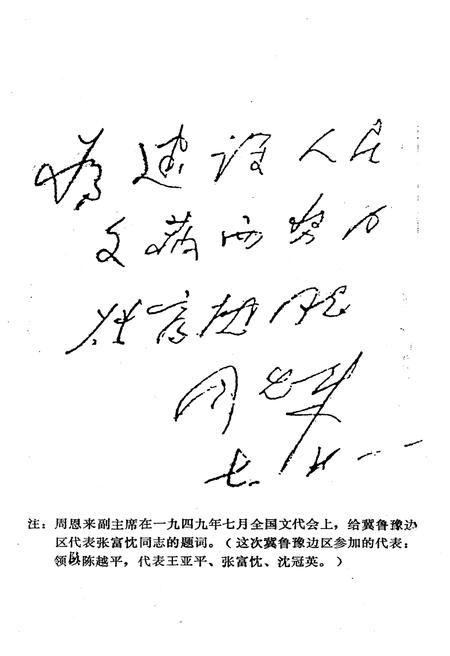 为建设人民
文艺而努力
张富忱同志
周恩来
七、廿一
注：周恩来副主席在一九四九年七月全国文代会上，给冀鲁豫边
区代表张富忱同志的题词。（这次冀鲁豫边区参加的代表：
领队陈越平，代表王亚平、张富忱、沈冠英。）